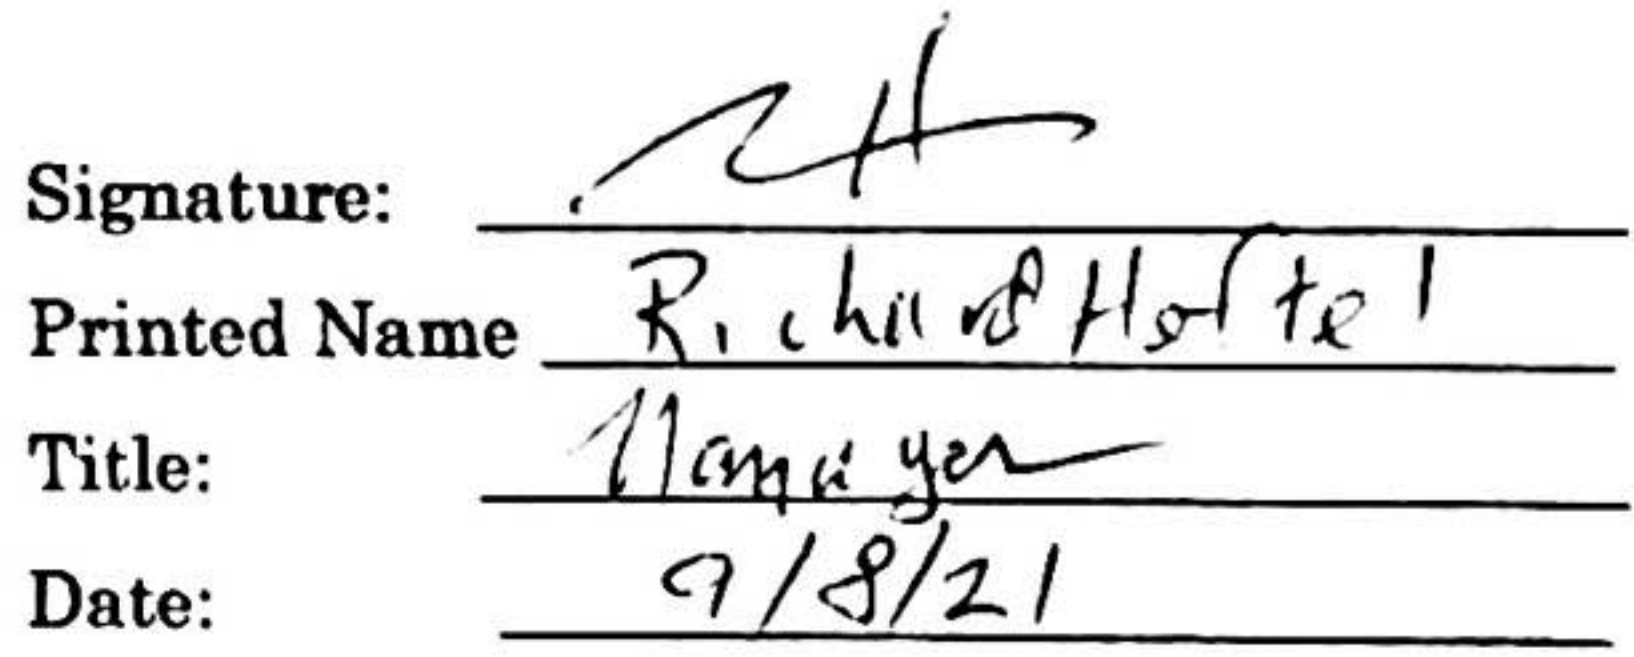 Signature:
Printed Name Richard Hortel
Title: Manager
Date: 9/8/21